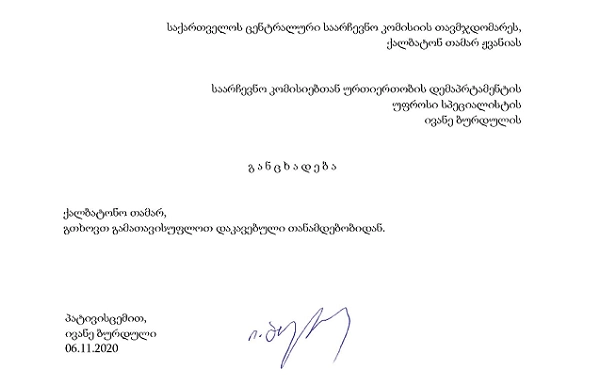 საქართველოს ცენტრალური საარჩევნო კომისიის თავმჯდომარეს,
ქალბატონ თამარ ჟვანიას
საარჩევნო კომისიებთან ურთიერთობის დემაპრტამენტის
უფროსი სპეციალისტის
ივანე ბურდულის
გ ა ნ ც ხ ა დ ე ბ ა
ქალბატონო თამარ,
გთხოვთ გამათავისუფლოთ დაკავებული თანამდებობიდან.
პატივისცემით,
ივანე ბურდული
06.11.2020